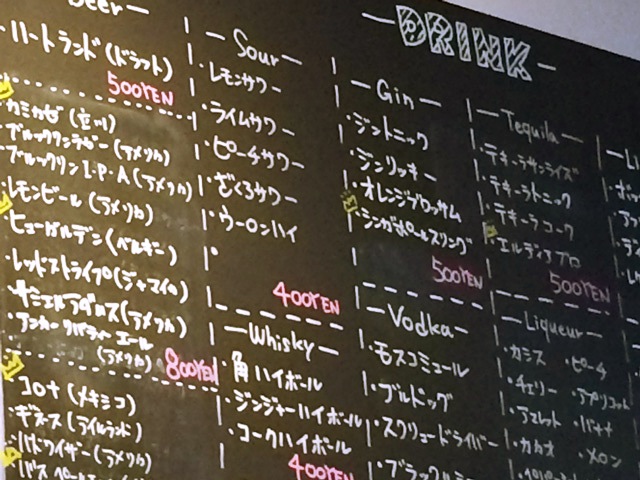 DRINK
Beer
・ハートランド(ドラフト)
500YEN
・カミカゼ(立川)
・ブルックリンラガー(アメリカ)
・ブルックリンI.P.A(アメリカ)
・レモンビール(アメリカ)
・ヒューガルデン(ベルギー)
・レッドストライプ(ジャマイカ)
・サミエルアダムス(アメリカ)
・アンカーリバティーエール
(アメリカ)
800YEN
・コロナ(メキシコ)
・ギネス(アイルランド)
・バドワイザー(アメリカ)
ーSourー
・レモンサワー
・ライムサワー
・ピーチサワー
・ざくろサワー
・ウーロンハイ
400YEN
ーWhiskyー
・角ハイボール
・ジンジャーハイボール
・コークハイボール
400YEN
ーGinー
・ジントニック
・ジンリッキー
・オレンジブロッサム
・シンガポールスリング
500YEN
ーVodkaー
・モスコミュール
・ブルドッグ
・スクリュードライバー
ーTequilaー
・テキーラサンライズ
・テキーラトニック
・テキーラコーク
・エルディアブロ
500YEN
ーLiqueurー
・カシス ・ピーチ
・チェリー ・アプリコット
・アマレット ・バナナ
・カカオ ・メロン